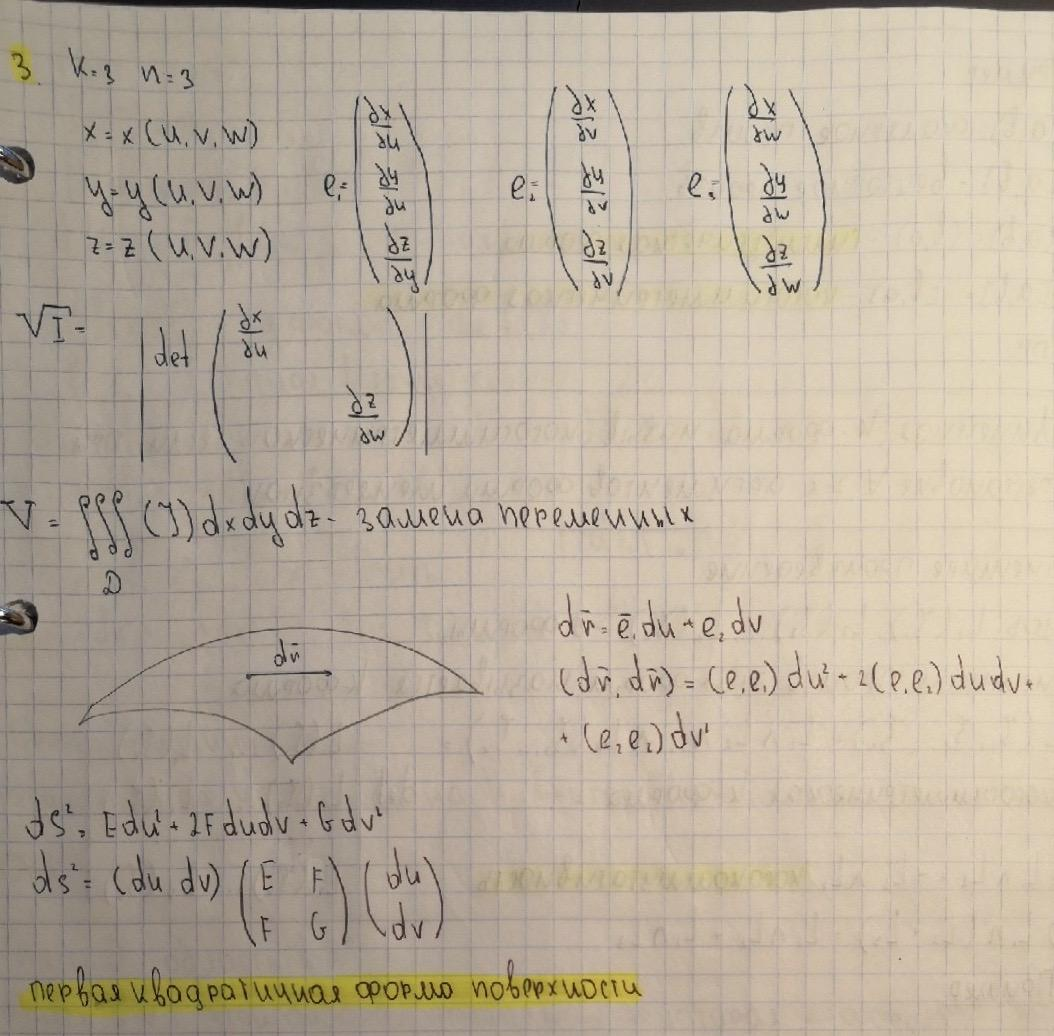 3. k=3 n=3
x = x (u, v, w)
y = y (u, v, w)
z = z (u, v, w)
e₁ = (∂x/∂u ∂y/∂u ∂z/∂y) e₂ = (∂x/∂v ∂y/∂v ∂z/∂v) e₃ = (∂x/∂w ∂y/∂w ∂z/∂w)
√I = | det ( ∂x/∂u ∂z/∂w ) |
V = ∭ (J) dx dy dz - замена переменных
D
dr̄
dr̄ = ē₁ du + e₂ dv
(dr̄, dr̄) = (e₁e₁) du² + 2(e₁e₂) du dv +
+ (e₂e₂) dv²
ds² = E du² + 2F du dv + G dv²
ds² = (du dv) (E F F G) (du dv)
первая квадратичная форма поверхности